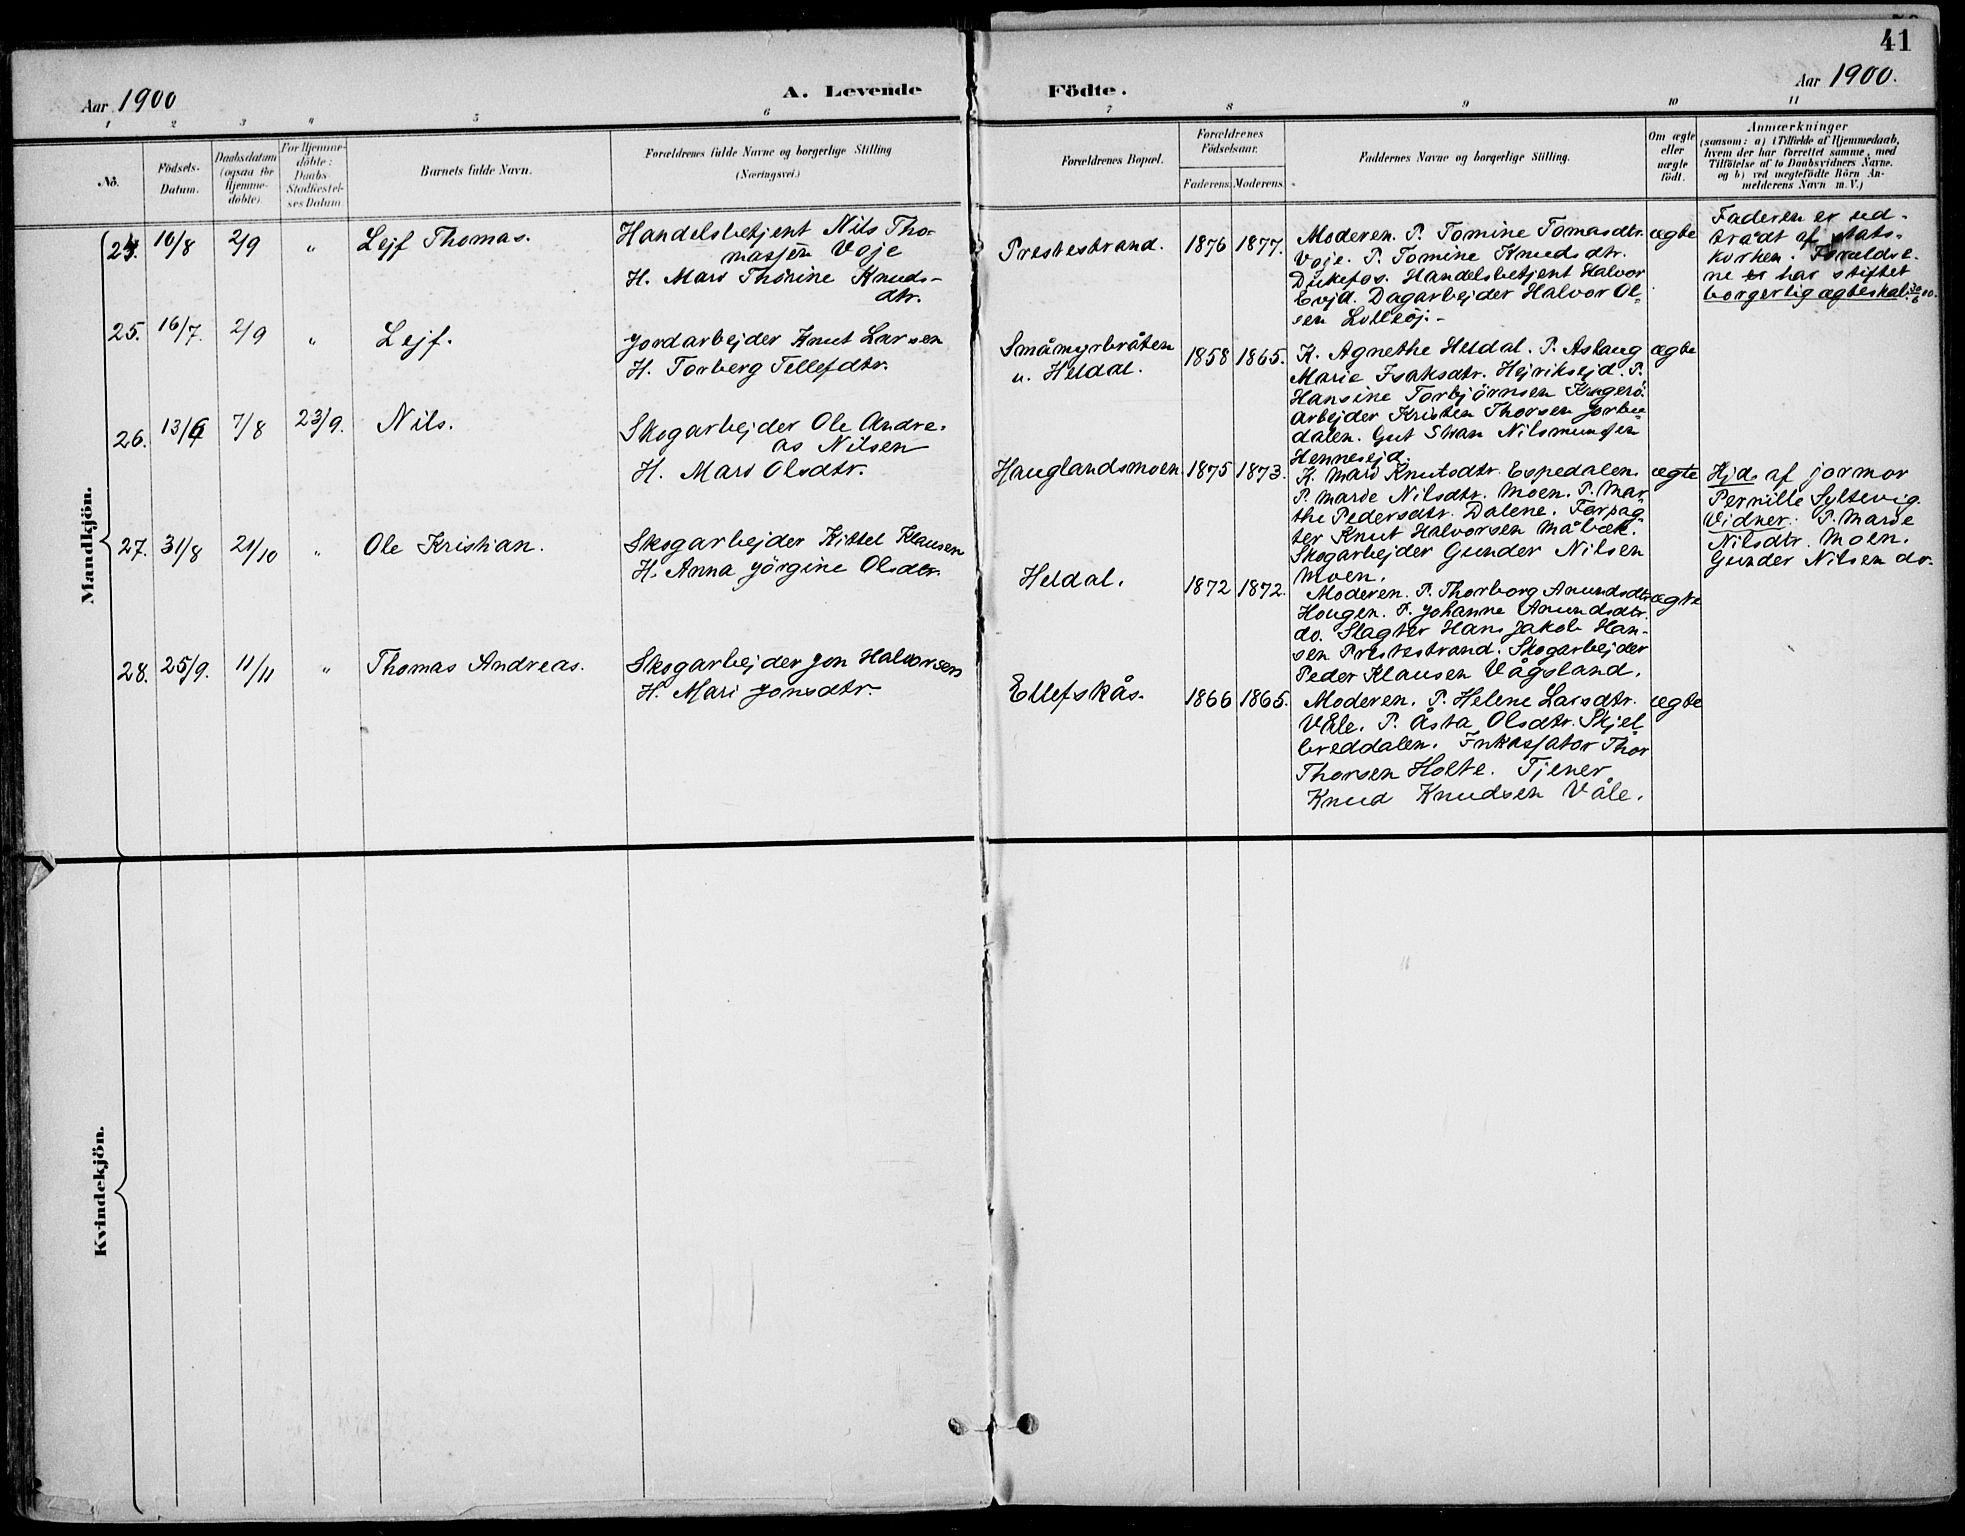 41
Aar 1900
A. Levende
Födte.
Aar 1900.
1 2 3 4 5 6 7 8 9 10 11
No.
Födsels-
Datum.
Daabsdatum
(ogsaa for
Hjemme-
döbte).
For Hjemme-
döbte:
Daabs-
Stadfæstel-
ses Datum
Barnets fulde Navn.
Forældrenes fulde Navne og borgerlige Stilling
(Næringsvei.)
Forældrenes Bopæl.
Forældrenes
Födselsaar.
Faderens. Moderens.
Faddernes Navne og borgerlige Stilling.
Om ægte
eller
uægte
födt.
Anmærkninger
(saasom: a) i Tilfælde af Hjemmedaab,
hvem der har forrettet samme, med
Tilföielse af to Daabsvidners Navne.
og b) ved uægtefödte Börn An-
melderens Navn m. V.)
Mandkjön.
24. 16/8 2/9 " Lejf Thomas.
Handelsbetjent Nils Tho-
massen Voje
H. Mari Thomine Knuds-
dtr.
Prestestrand. 1876 1877.
Moderen. P. Tomine Tomasdtr.
Voje. P. Tomine Knudsdtr.
Dukefos. Handelsbetjent Halvor
Evjd. Dagarbejder Halvor Ol-
sen
ægte
Faderen er ud-
trådt af stats-
kirken. Foreldre-
ne er har stiftet
borgerlig ægteskab 30/6 00.
25. 16/7. 2/9 " Lejf.
Jordarbejder Knut Larsen
H. Torberg Tellefdtr.
Småmyrbråten
u. Heldal.
1858 1865.
K. Agnethe Heldal. P. Aslaug
Marie Isaksdtr. Hejriksejd. P.
Hansine Torbjörnsen Kragerö.
Arbejder Kristen Thorsen
dalen. Gut
Hennesejd.
ægte
26. 13/6 7/8 23/9. Nils.
Skogarbejder Ole Andre-
as Nilsen
H. Mari Olsdtr.
Hauglandsmoen. 1875 1873.
K. Mari Knutsdtr. Espedalen.
P. Marie Nilsdtr. Moen. P. Mar-
the Pedersdtr. Dalene. Forpag-
ter Knut Halvorsen Målbæk.
Skogarbejder Gunder Nilsen
Moen.
ægte
Hjd. af jormor
Pernille Syltevig.
Vidner: P. Marie
Nilsdtr. Moen.
Gunder Nilsen do.
27. 31/8 21/10 " Ole Kristian.
Skogarbejder Kittel Klausen
H. Anna Jörgine Olsdtr.
Heldal. 1872 1872.
Moderen. P. Thorborg Amundsdtr
Hougen. P. Johanne Amundsdtr.
do. Slagter Hans Jakob Han-
sen Prestestrand. Skogarbejder
Peder Klausen Vågsland.
ægte
28. 25/9. 11/11 " Thomas Andreas.
Skogarbejder Jon Halvorsen
H. Mari Jonsdtr.
Ellefskås. 1866 1865.
Moderen. P. Helene Larsdtr.
Våle. P. Åsta Olsdtr. Skjel-
breddalen. Inkassator Thor
Thorsen Holte. Tjener
Knud Knudsen Våle.
ægte
Kvindekjön.